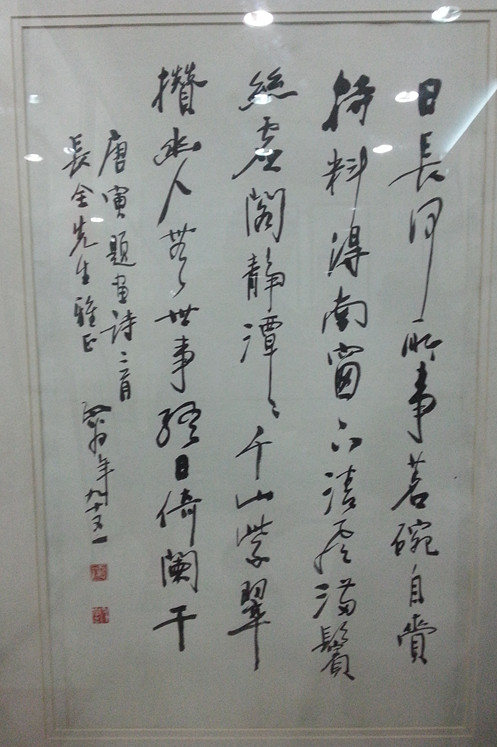 日長何所事茗碗自賫
持料得南窗下清風滿鬢
絲虛閣靜潭〻千山紫翠
攢幽人無世事終日倚闌干
唐寅題畫詩二首
長全先生雅正
年九十